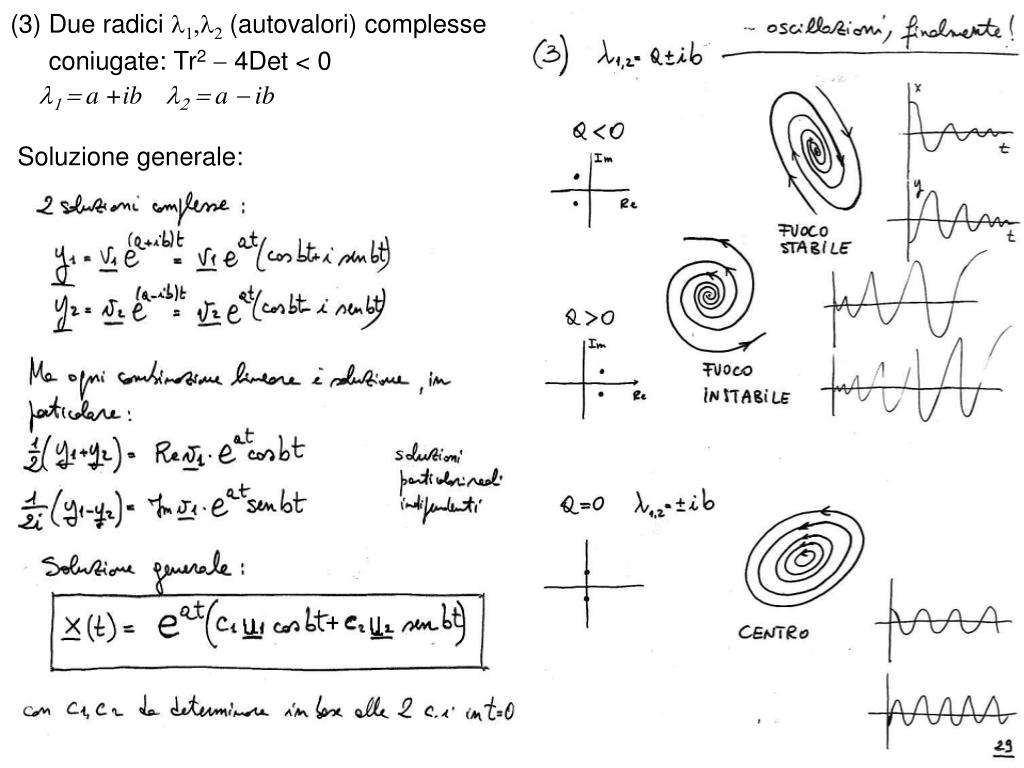 (3) Due radici λ1,λ2 (autovalori) complesse
coniugate: Tr² – 4Det < 0
λ1 = a + ib λ2 = a – ib
Soluzione generale:
2 soluzioni complesse :
y1 = v1 e^(a+ib)t = v1 e^at (cos bt + i sen bt)
y2 = v2 e^(a-ib)t = v2 e^at (cos bt - i sen bt)
Ma ogni combinazione lineare è soluzione, in
particolare :
1/2 (y1+y2) = Re v1 · e^at cos bt
1/2i (y1-y2) = Im v1 · e^at sen bt
soluzioni
particolari reali
indipendenti
Soluzione generale :
x(t) = e^at (c1 u1 cos bt + c2 u2 sen bt)
con c1, c2 da determinare in base alle 2 c.i. in t=0
- oscillazioni, finalmente!
(3) λ1,2 = a ± ib
a<0
Im
Re
FUOCO
STABILE
x
t
y
t
a>0
Im
Re
FUOCO
INSTABILE
a=0 λ1,2 = ± ib
CENTRO
29